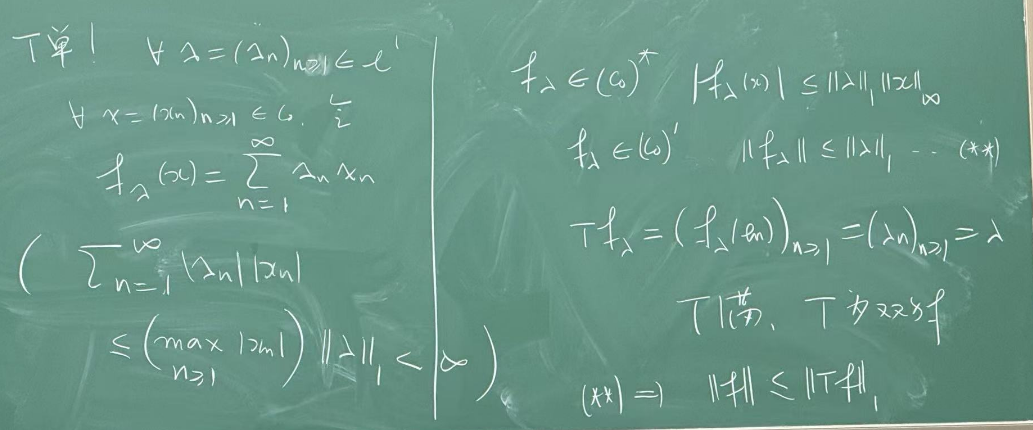 T 单! ∀ λ = (λn)n≥1 ∈ ℓ¹
∀ x = (xn)n≥1 ∈ c₀. 令
f_λ(x) = ∑_{n=1}^{∞} λn xn
( ∑_{n=1}^{∞} |λn| |xn|
≤ (max_{n≥1} |xn|) ‖λ‖₁ < ∞ )
f_λ ∈ (c₀)* |f_λ(x)| ≤ ‖λ‖₁ ‖x‖_∞
f_λ ∈ (c₀)' ‖f_λ‖ ≤ ‖λ‖₁ ... (**)
T f_λ = (f_λ(en))n≥1 = (λn)n≥1 = λ
T 满. T 为双射
(**) ⇒ ‖f‖ ≤ ‖Tf‖₁